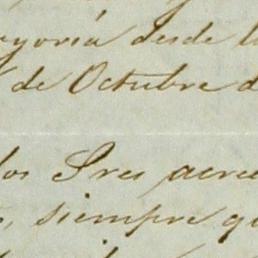 ayoría desde l
de Octubre d
los Sres acree
, siempre qu